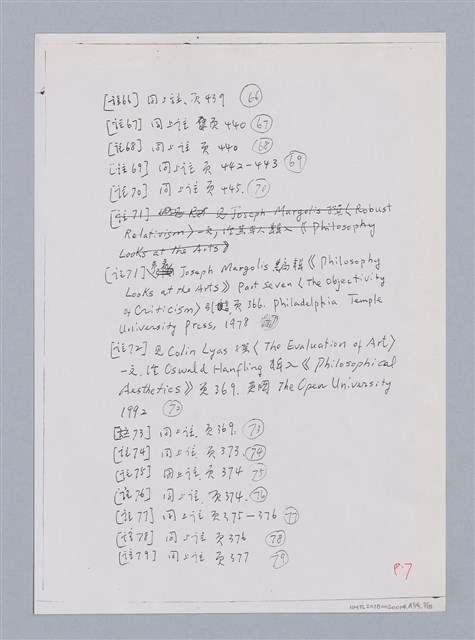 [註66] 同上註、頁439 66
[註67] 同上註 頁440 67
[註68] 同上註 頁440 68
[註69] 同上註 頁442-443 69
[註70] 同上註 頁445. 70
[註71] 見 Joseph Margolis 〈Robust
Relativism〉一文, 《Philosophy
Looks at the Arts》
[註71] Joseph Margolis 編輯《Philosophy
Looks at the Arts》 Part Seven 〈The Objectivity
of Criticism〉 引 頁366. Philadelphia Temple
University Press, 1978
[註72] 見 Colin Lyas 〈The Evaluation of Art〉
一文. Oswald Hanfling 《Philosophical
Aesthetics》頁369. The Open University
1992 72
[註73] 同上註. 頁369. 73
[註74] 同上註. 頁373. 74
[註75] 同上註. 頁374 75
[註76] 同上註. 頁374. 76
[註77] 同上註 頁375-376 77
[註78] 同上註 頁376 78
[註79] 同上註. 頁377 79
P.7